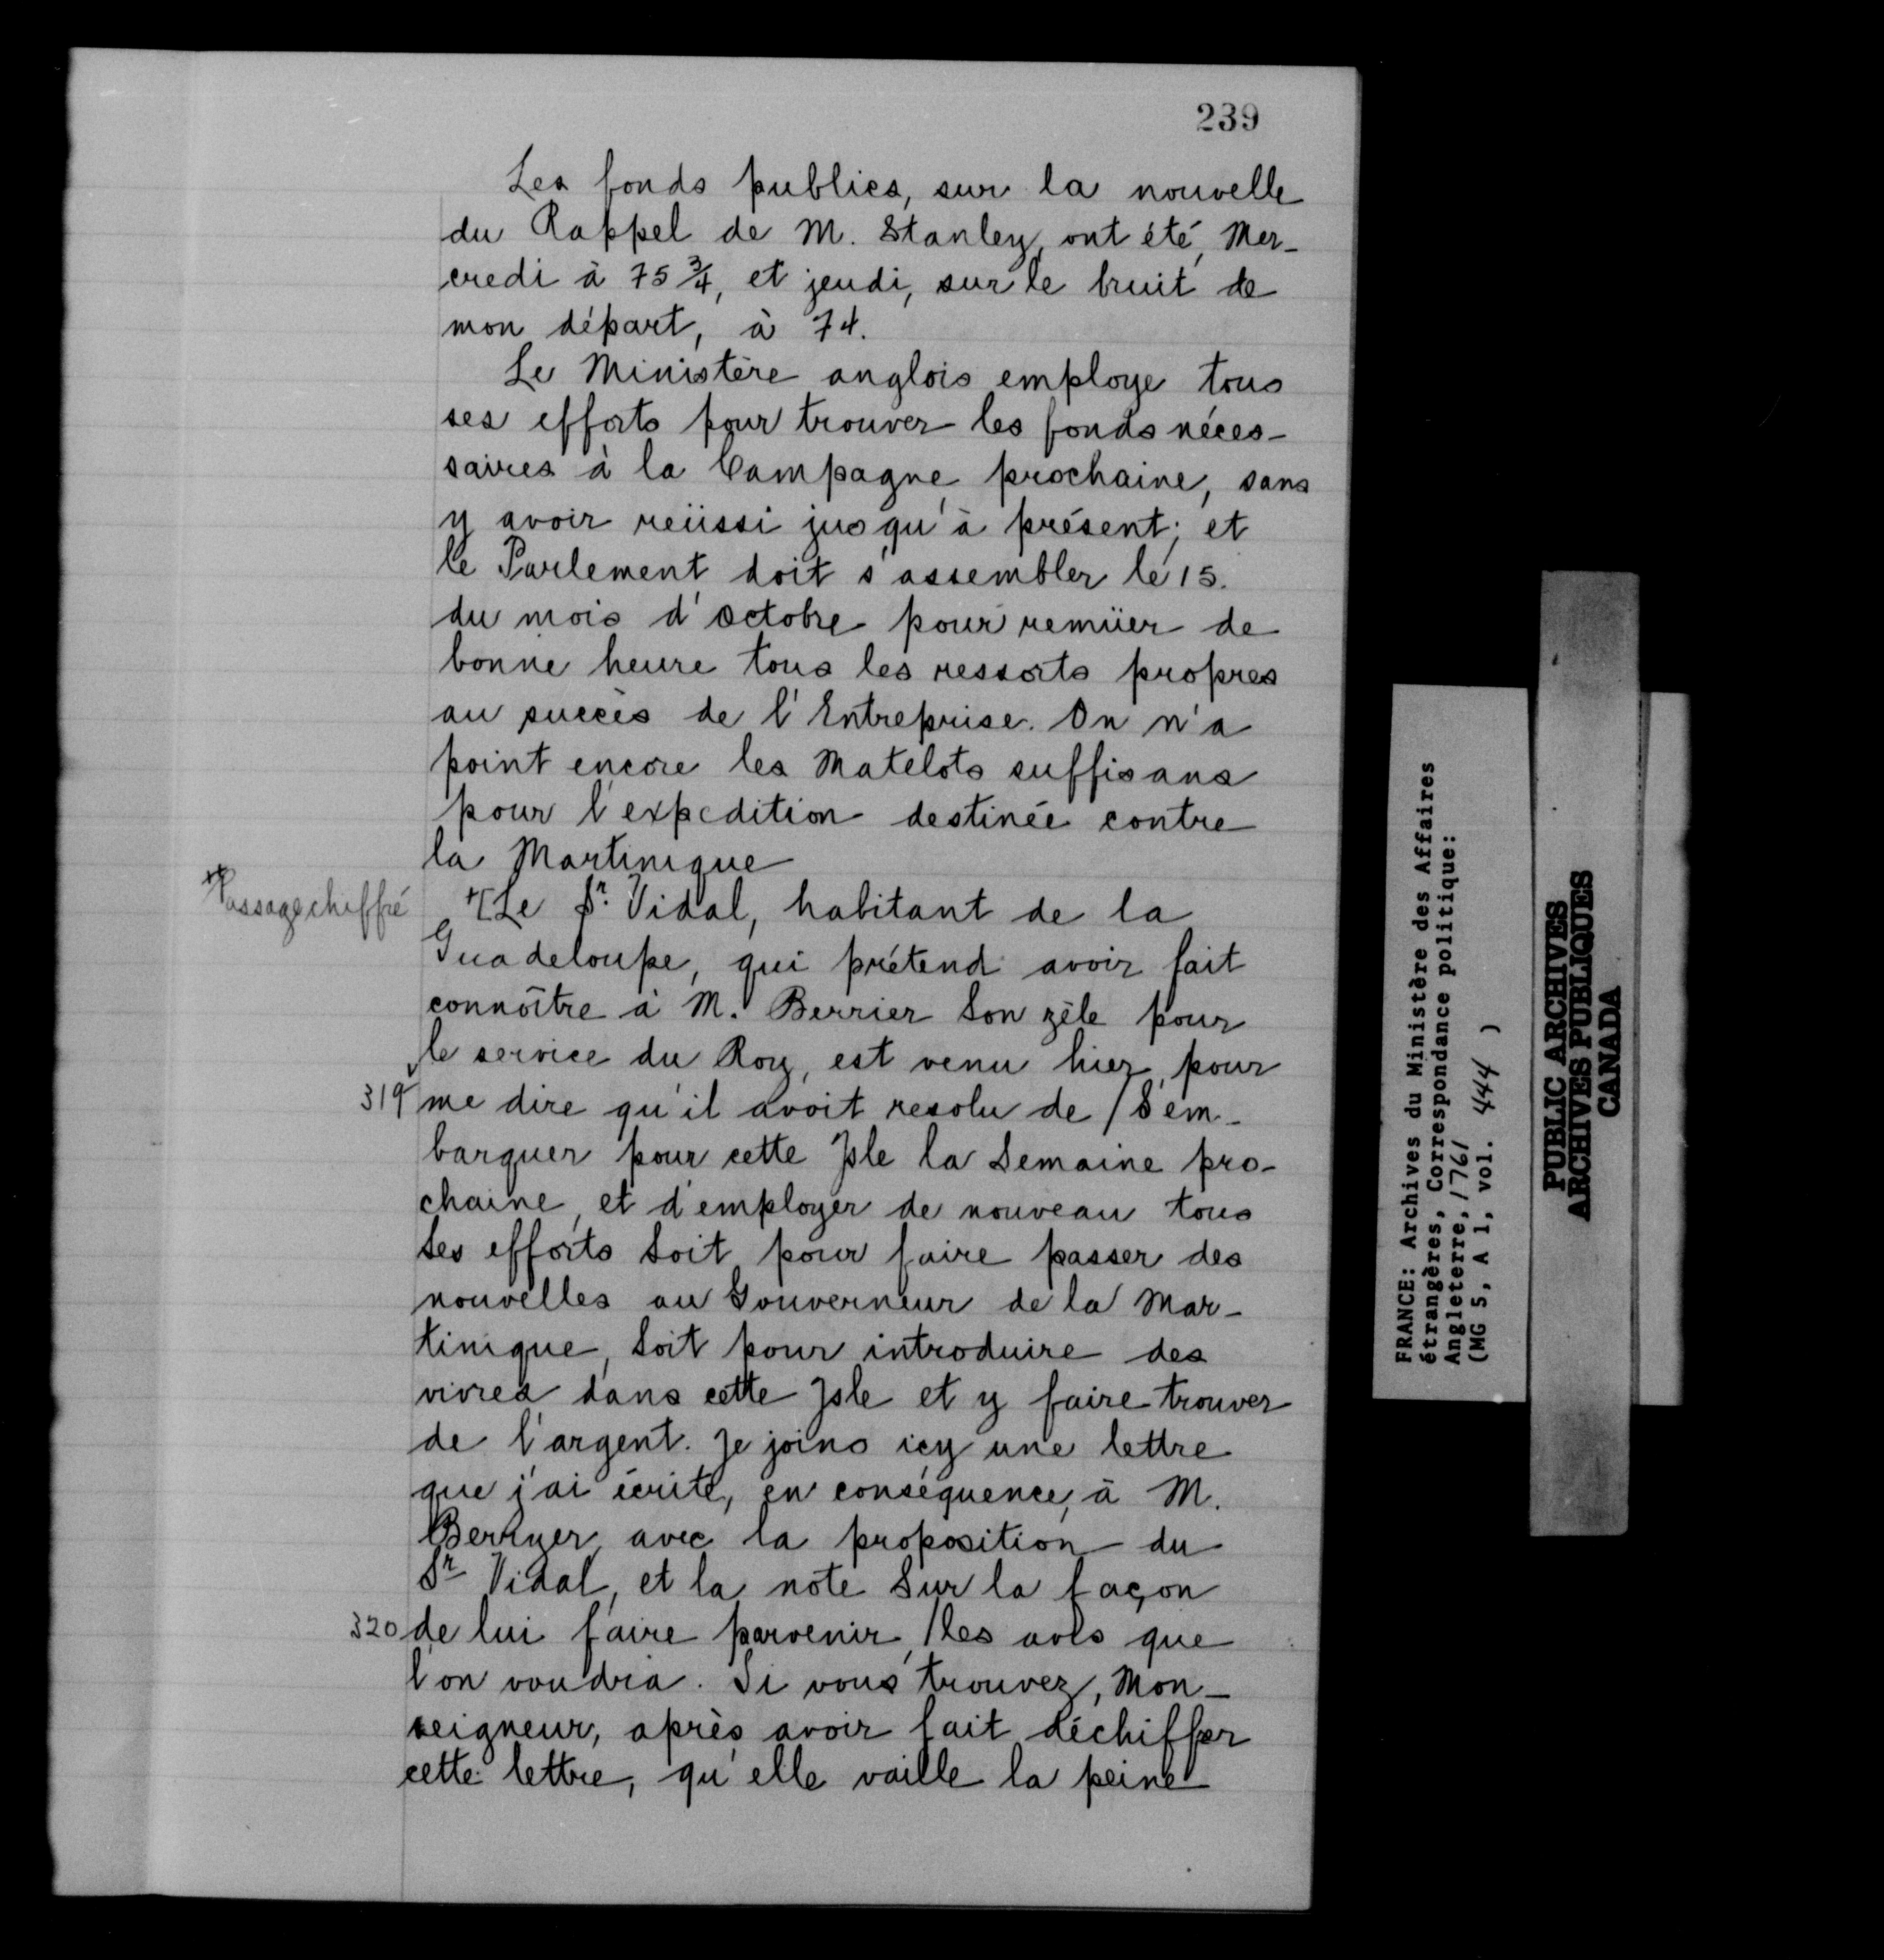 239
Les fonds publics, sur la nouvelle
du Rappel de M. Stanley, ont été, Mer-
credi à 75 3/4, et jeudi, sur le bruit de
mon départ, à 74.
Le Ministère anglois employe tous
ses efforts pour trouver les fonds néces-
saires à la Campagne prochaine, sans
y avoir reüssi jusqu'à présent; et
le Parlement doit s'assembler le 15.
du mois d'octobre pour remüer de
bonne heure tous les ressorts propres
au succès de l'Entreprise. On n'a
point encore les Matelots suffisans
pour l'expedition destinée contre
la Martinique
*Passage chiffré
*[Le Sr. Vidal, habitant de la
Guadeloupe, qui prétend avoir fait
connoître à M. Berrier Son zèle pour
le service du Roy, est venu hier, pour
319 me dire qu'il avoit resolu de / S'em-
barquer pour cette Isle la Semaine pro-
chaine, et d'employer de nouveau tous
Ses efforts Soit pour faire passer des
nouvelles au Gouverneur de la Mar-
tinique, Soit pour introduire des
vivres dans cette Isle et y faire trouver
de l'argent. Je joins icy une lettre
que j'ai écrite, en conséquence, à M.
Berryer, avec la proposition du
Sr Vidal, et la note Sur la façon
320 de lui faire parvenir / les avis que
l'on voudra. Si vous trouvez, Mon-
seigneur, après avoir fait déchiffer
cette lettre, qu'elle vaille la peine
FRANCE: Archives du Ministère des Affaires
étrangères, Correspondance politique:
Angleterre, 1761
(MG 5, A 1, vol. 444 )
PUBLIC ARCHIVES
ARCHIVES PUBLIQUES
CANADA